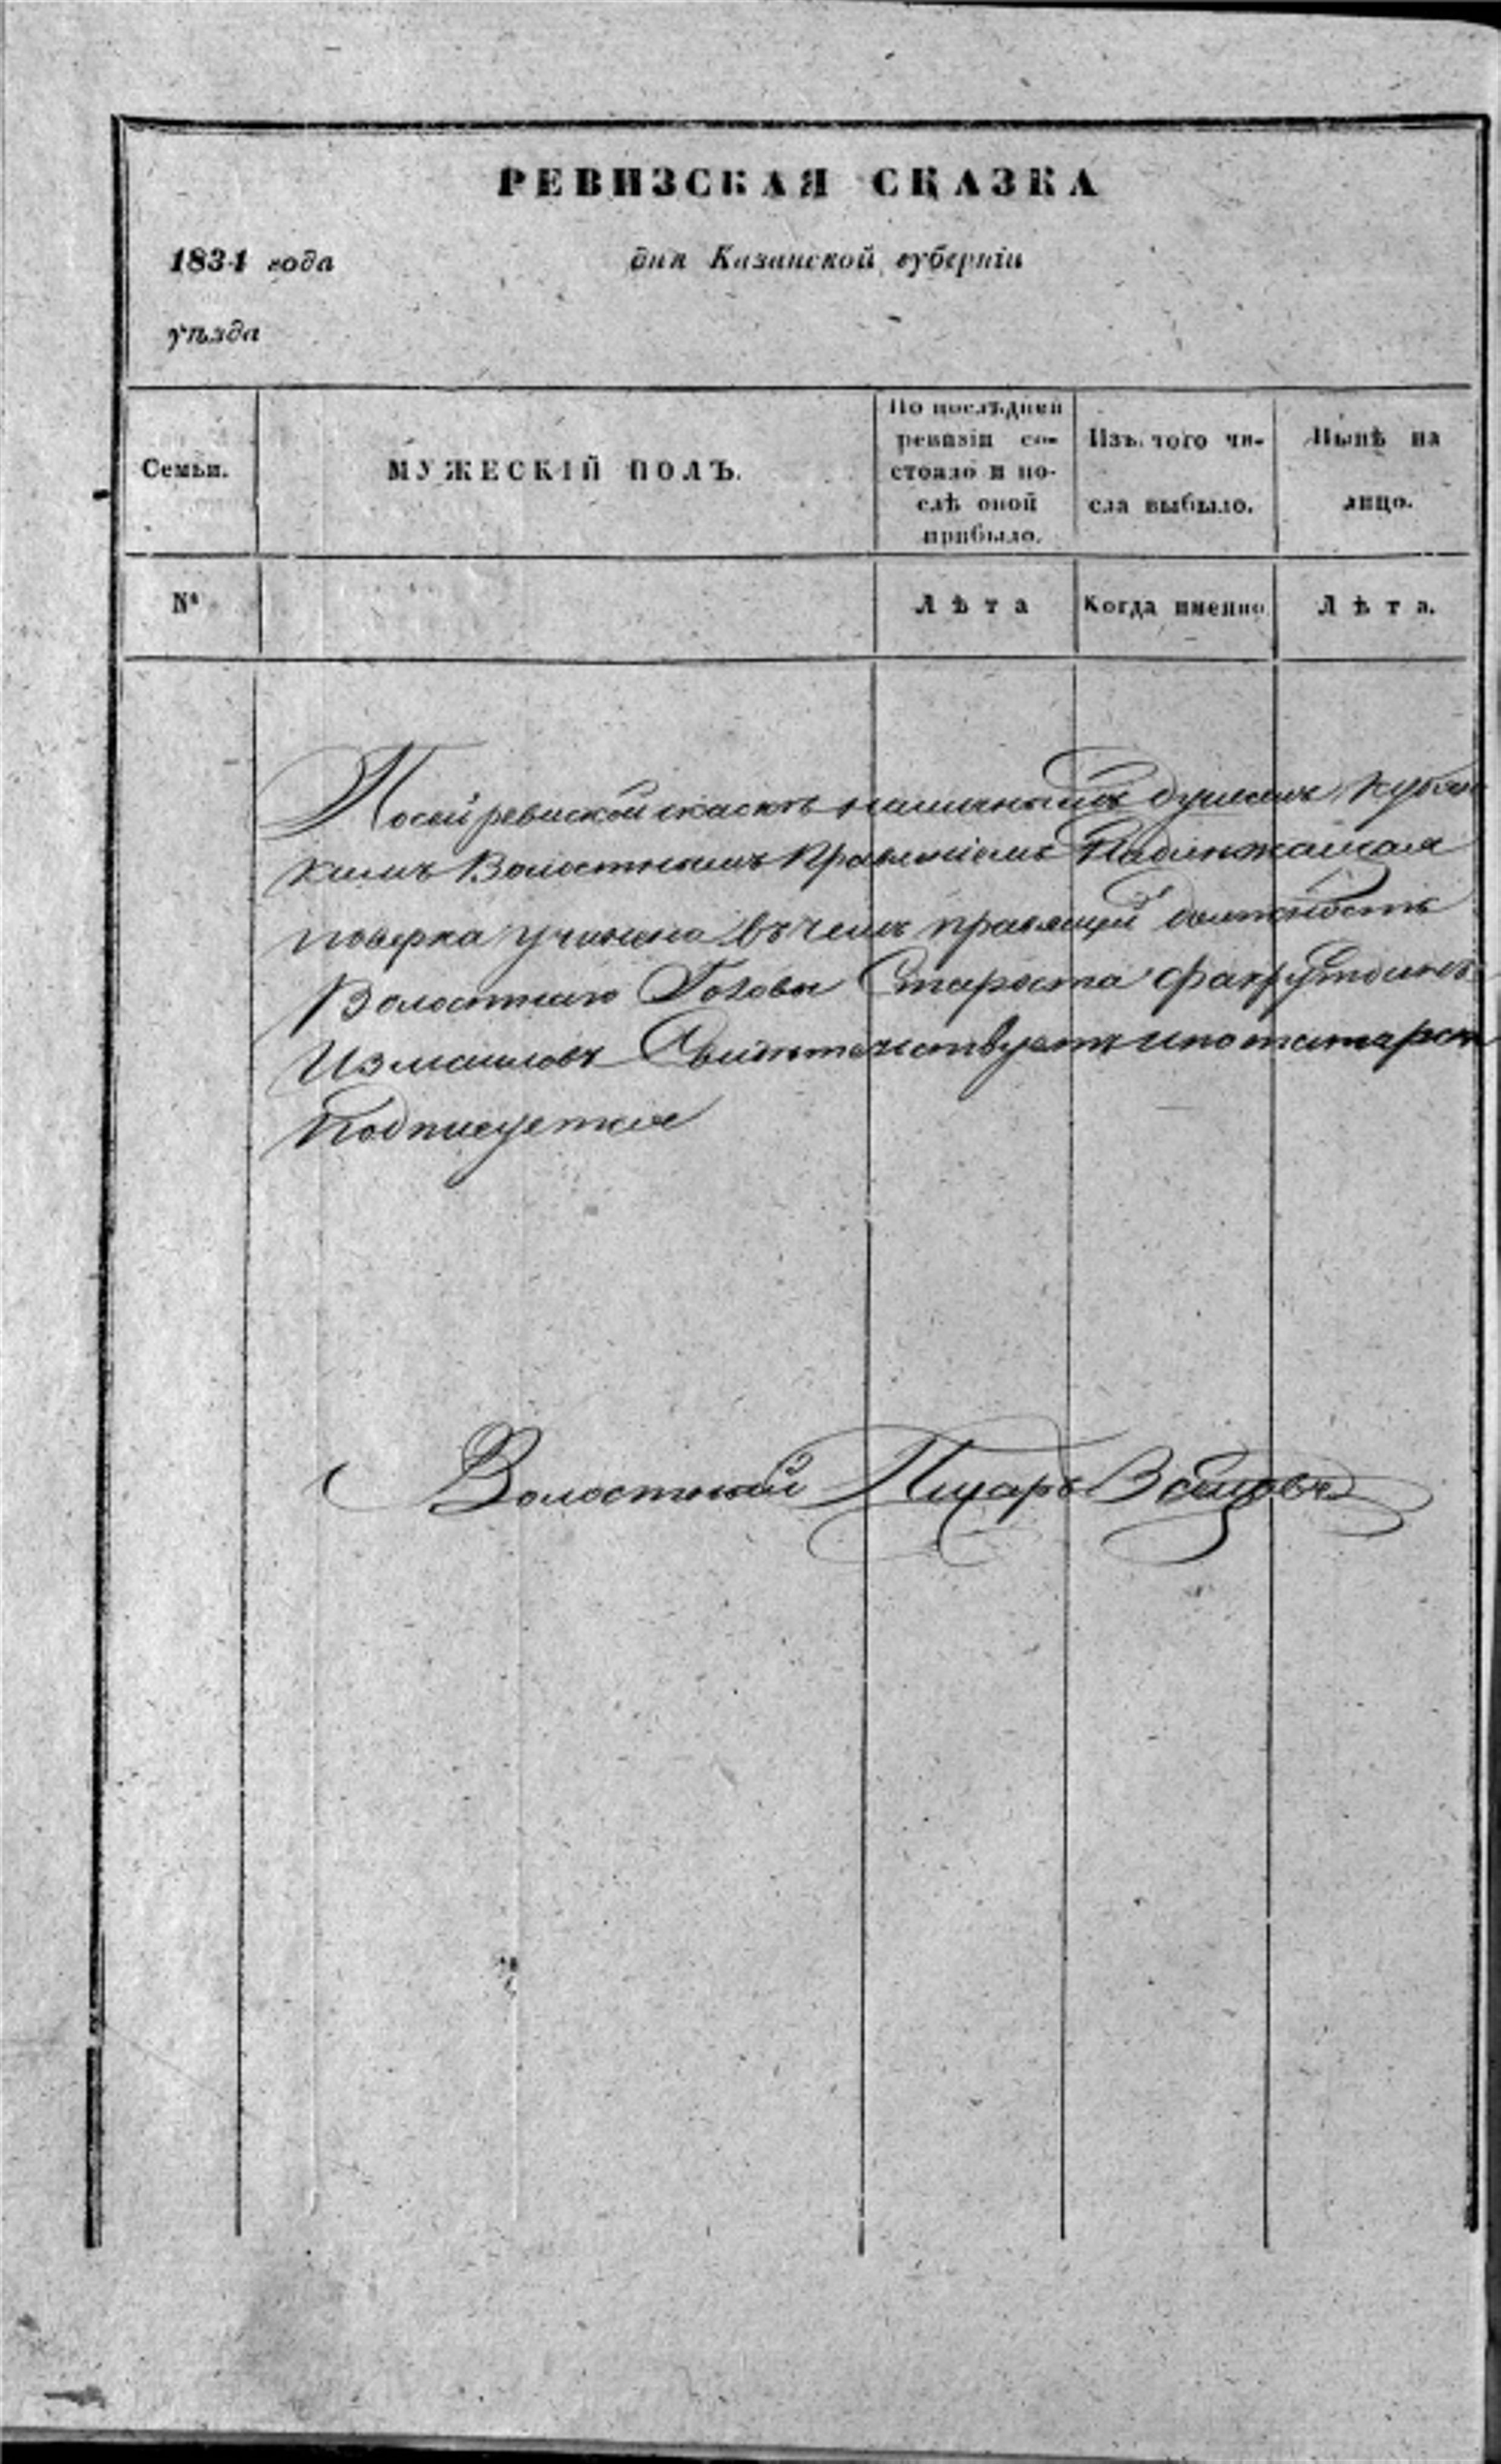 РЕВИЗСКАЯ СКАЗКА
1834 года дня Казанской губерніи
уѣзда
Семьи.
МУЖЕСКІЙ ПОЛЪ.
По послѣдней
ревизіи со-
стояло и по-
слѣ оной
прибыло.
Изъ того чи-
сла выбыло.
Нынѣ на
лицо.
№
Лѣта
Когда именно
Лѣта.
Посей ревиской скаскѣ душамъ Кубян
кимъ Волостнымъ Правленіемъ Надлежащая
поверка учинена въ чемъ правящей должность
Волостнаго Головы Староста Фахрутдинъ
Измаиловъ Свидѣтельствуетъ ипотатарски
Подписуется
Волостной Писарь